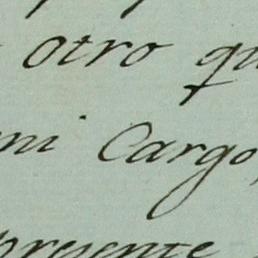 otro qu
mi Cargo,
presente